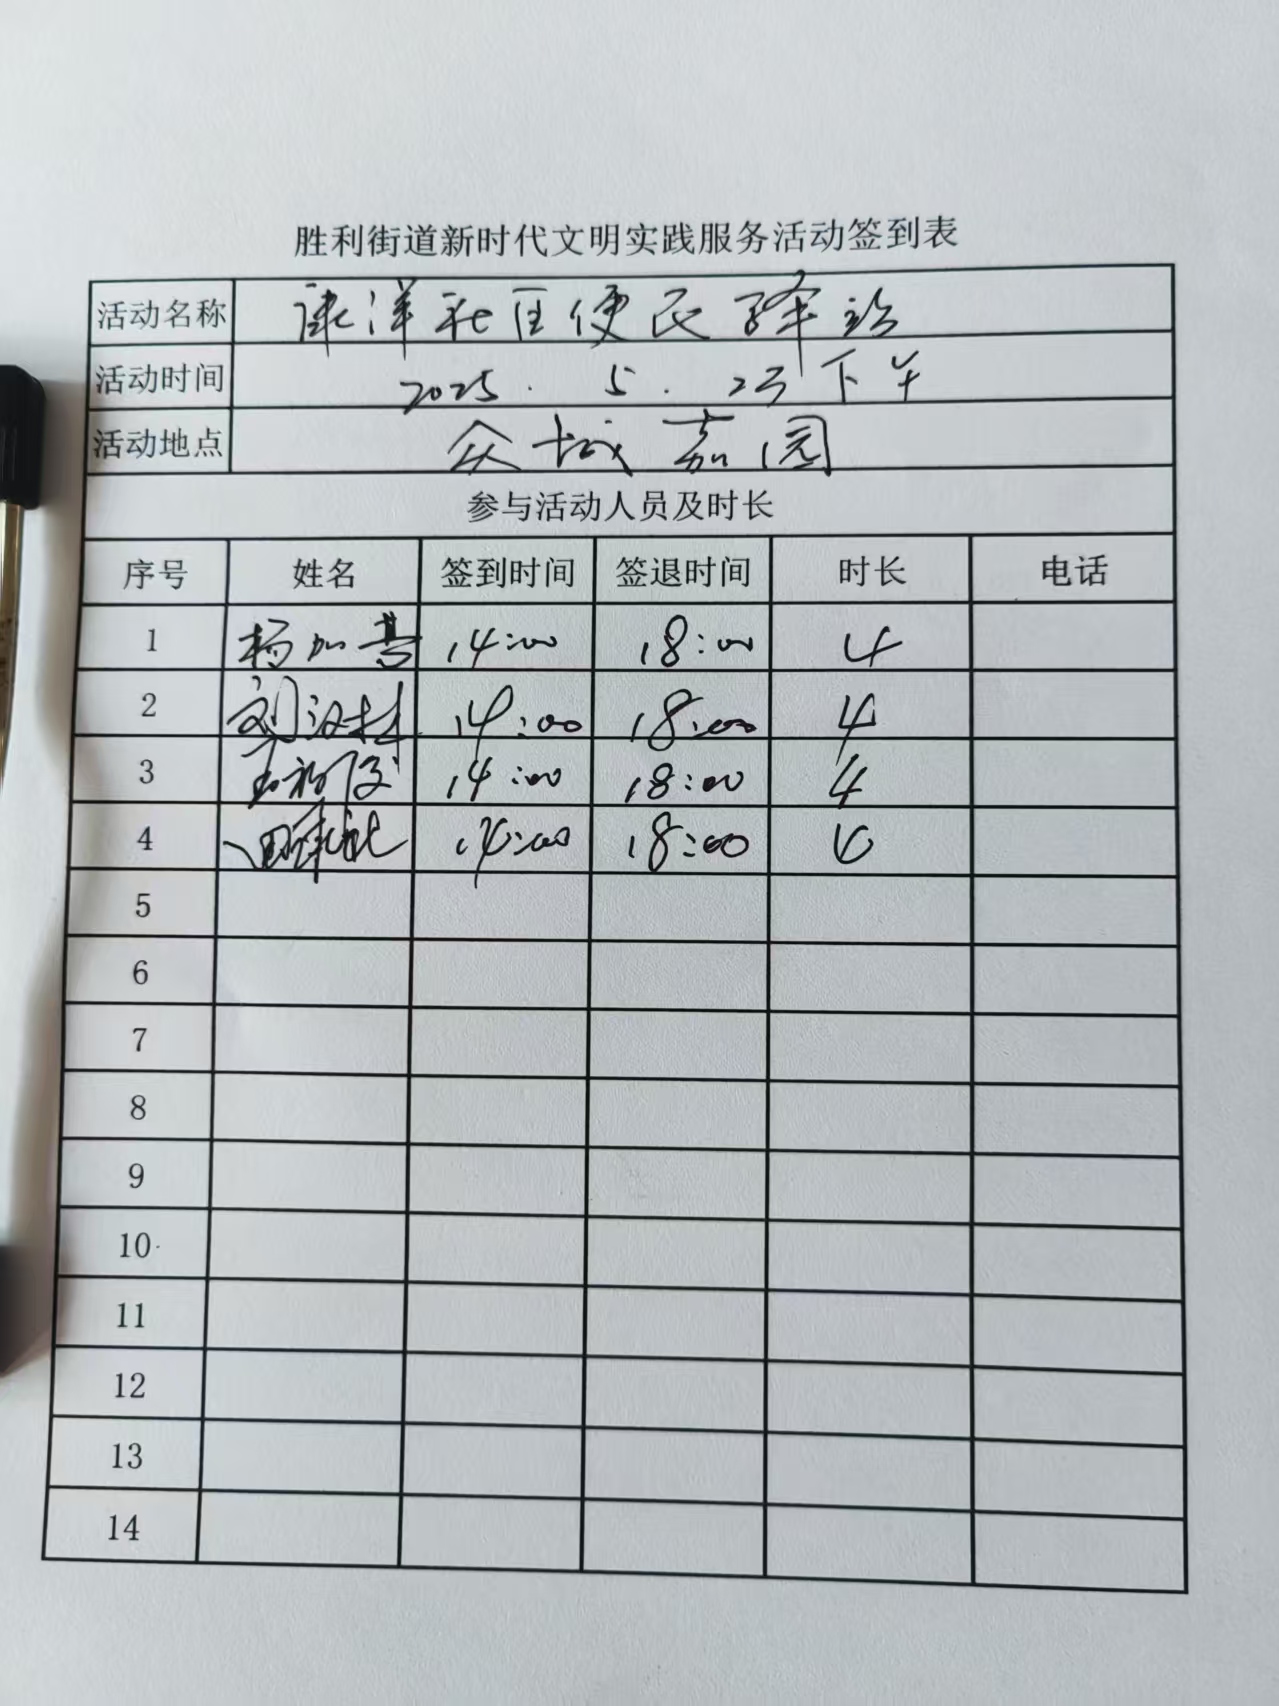 胜利街道新时代文明实践服务活动签到表
活动名称 康洋社区便民驿站
活动时间 2025.5.23下午
活动地点 众城嘉园
参与活动人员及时长
序号 姓名 签到时间 签退时间 时长 电话
1 杨加 14:00 18:00 4
2 刘汉林 14:00 18:00 4
3 14:00 18:00 4
4 14:00 18:00
5
6
7
8
9
10
11
12
13
14